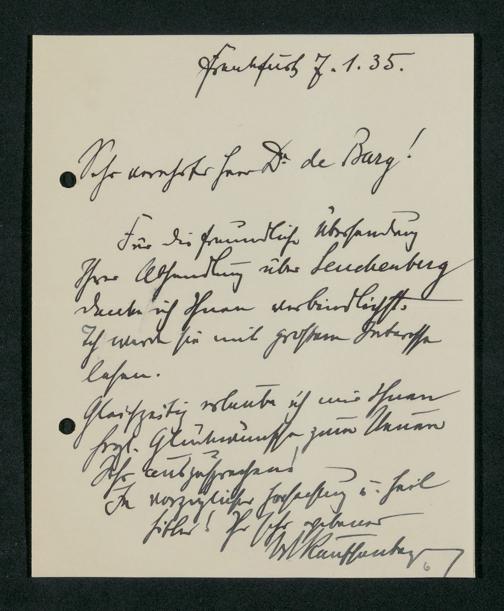 Frankfurt 7.1.35.
Sehr verehrter Herr Dr. de Barg!
Für die freundliche Übersendung
Ihrer Abhandlung über Leuchenberg
danke ich Ihnen verbindlichst.
Ich werde sie mit großem Interesse
lesen.
Gleichzeitig erlaube ich mir Ihnen
herzl. Glückwünsche zum Neuen
Jahr auszusprechen!
In vorzüglicher Hochachtung u. Heil
Hitler! Ihr sehr ergebener